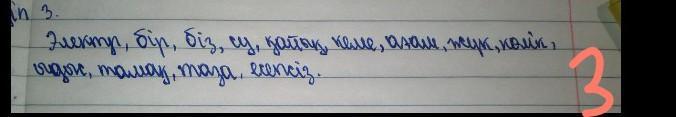 ın 3.
Электр, бір, біз, су, қайық, кеме, адам, жүк, көлік,
ыдыс, тамақ, таза, есепсіз.
3